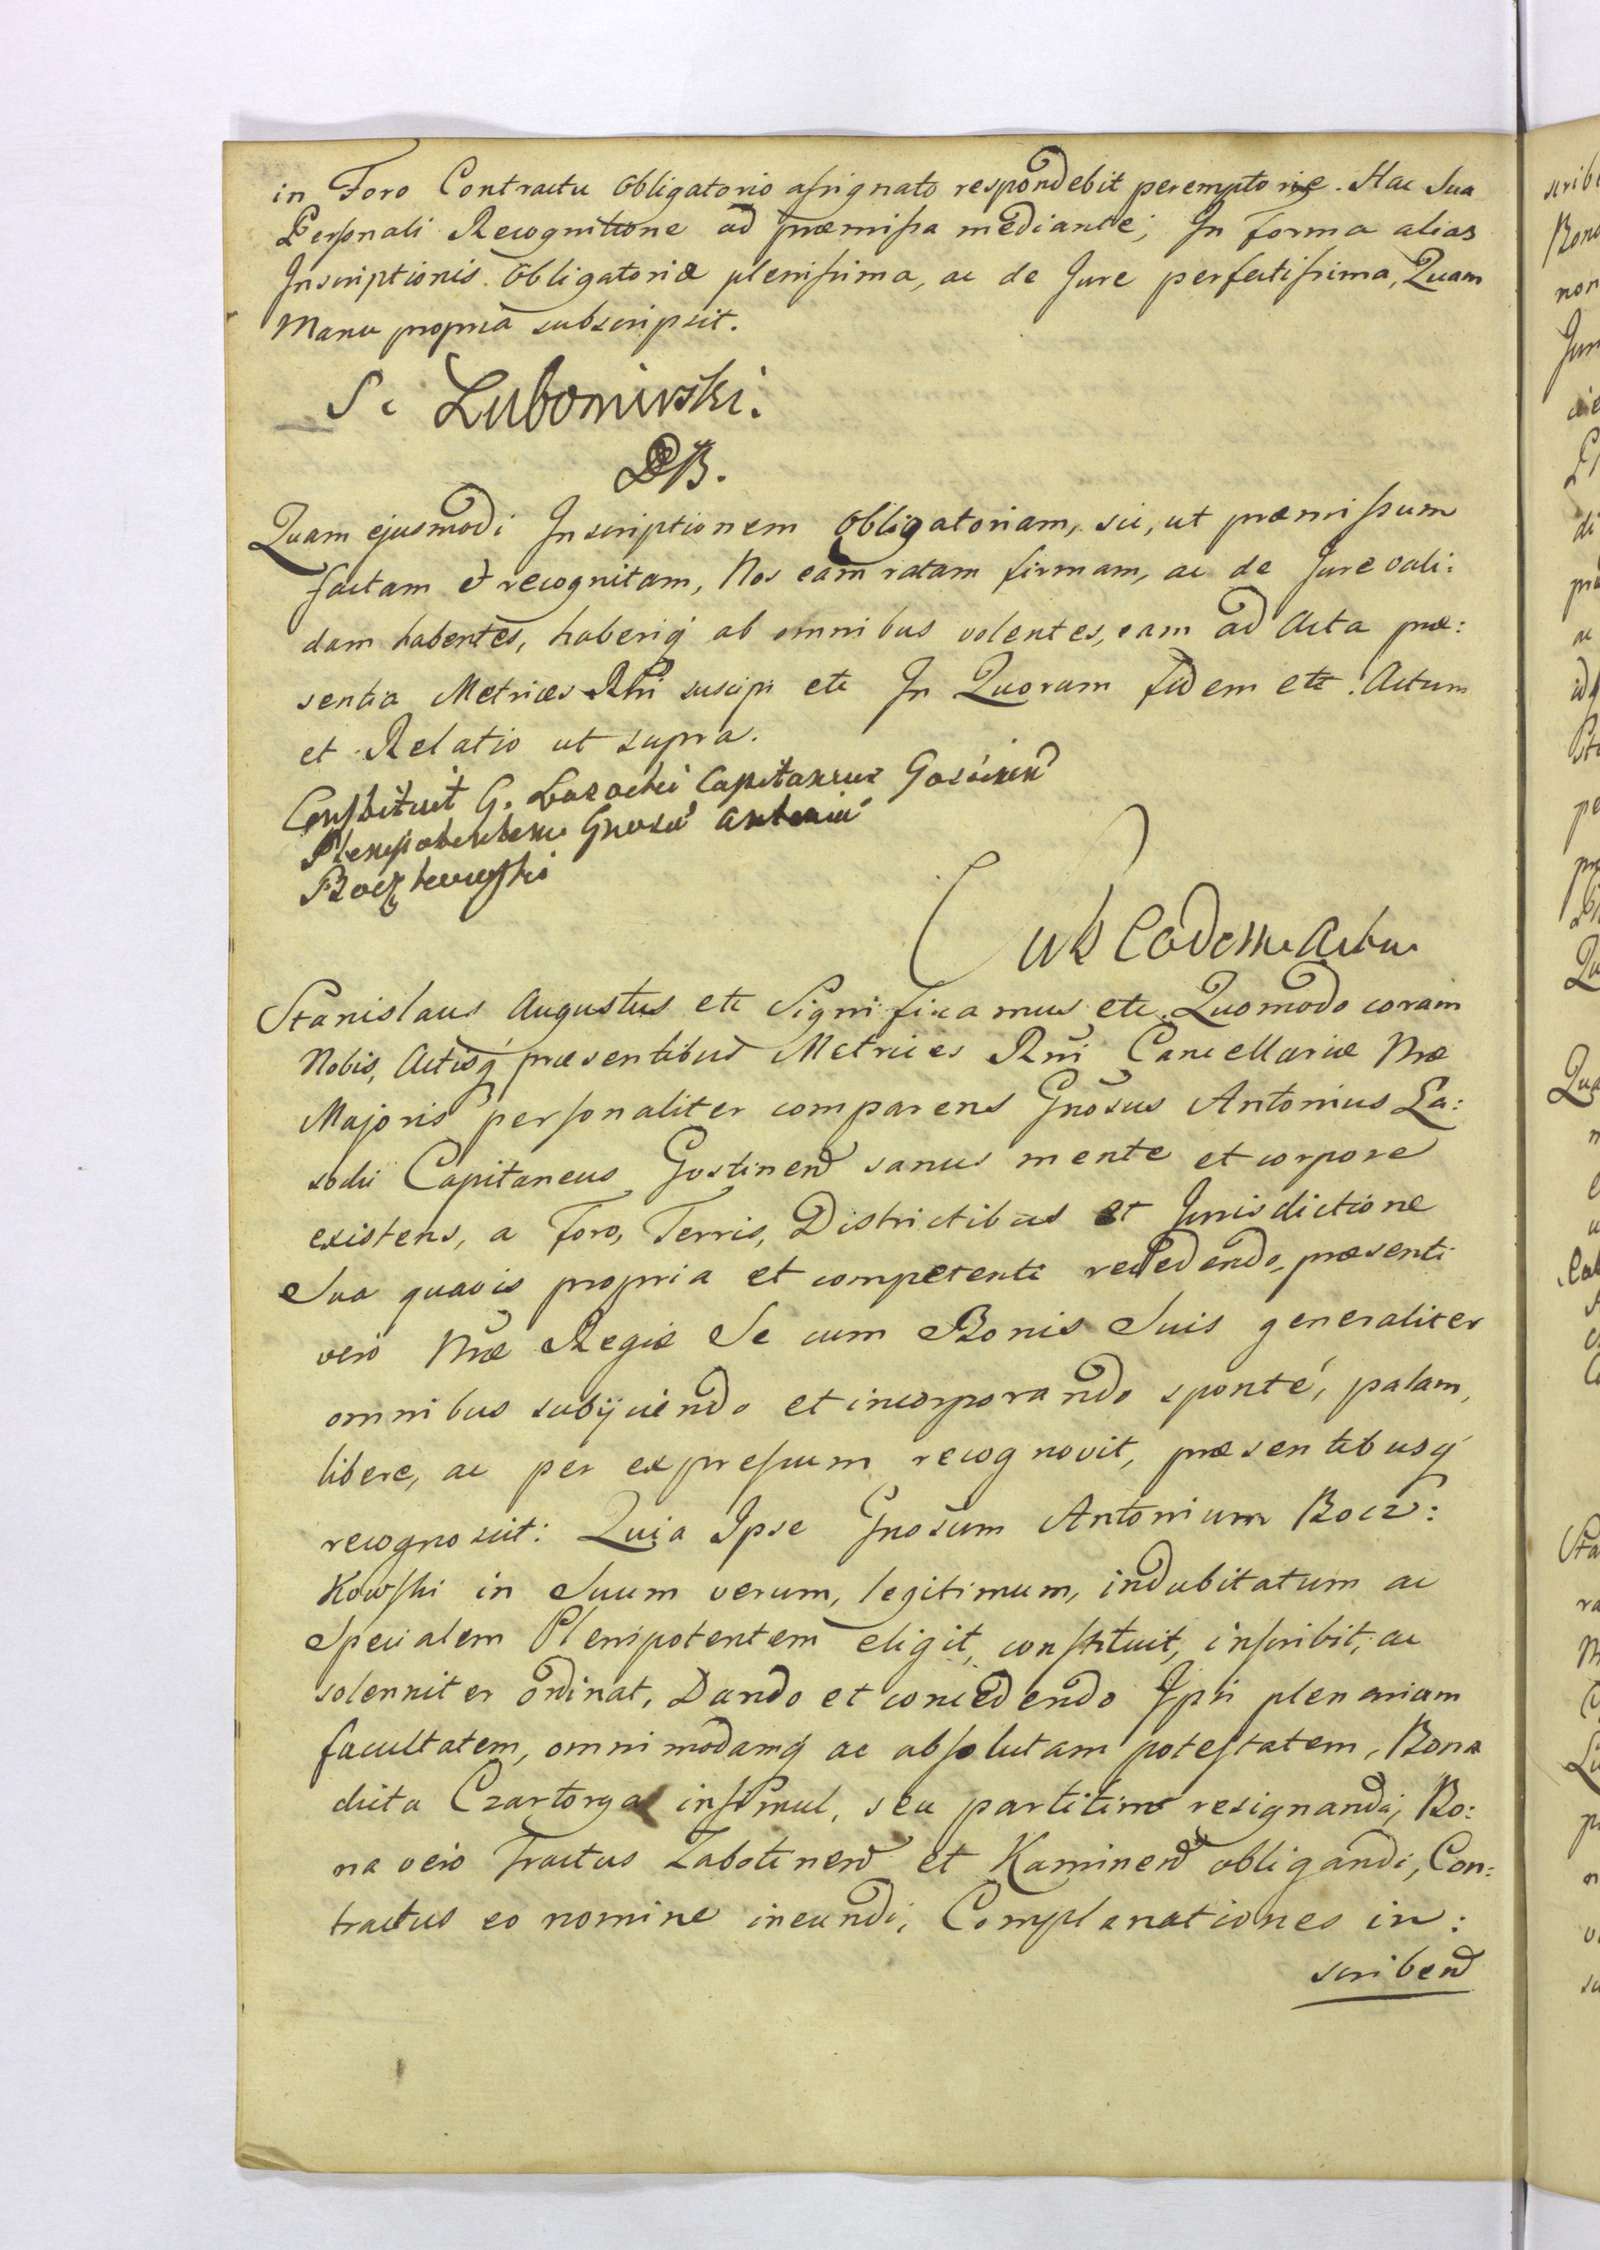 in Foro Contractu Obligatorio assignato respondebit peremptorie. Hac Sua
Personali Recognitione ad præmissa mediante; In forma alias
Inscriptionis Obligatoriæ plenissima, ac de Jure perfectissima, Quam
Manu propria subscripsit.
S: Lubomirski.
DB.
Quam ejusmodi Inscriptionem Obligatoriam, sic, ut præmissum
factam et recognitam, Nos eam ratam firmam, ac de Jure vali:
dam habentes, haberiq́ ab omnibus volentes, eam ad Acta præ:
sentia Metrices Rñi suscipi etc In Quorum fidem etc. Actum
et Relatio ut supra.
Constituit G. Lasocki Capitaneus Gostinen
Plenipotentem Gnosū Antoniū
Boczkowski
Sub Eodem Actu
Stanislaus Augustus etc Significamus etc. Quomodo coram
Nobis, Actisq́ præsentibus Metrices Rñi Cancellariæ Nræ
Majoris personaliter comparens Gñosus Antonius La:
socki Capitaneus Gostinen sanus mente et corpore
existens, a Foro, Terris, Districtibus et Jurisdictione
Sua quavis propria et competenti recedendo, præsenti
vero Nræ Regiæ Se cum Bonis Suis generaliter
omnibus subijciendo et incorporando sponté, palam,
libere, ac per expressum recognovit, præsentibusq́
recognoscit: Quia Ipse Gnosum Antonium Bocz:
Kowski in Suum verum, legitimum, indubitatum ac
Specialem Plenipotentem eligit, constituit, inscribit, ac
solenniter ordinat, Dando et concedendo Ipsi plenariam
facultatem, omnimodamq́ ac absolutam potestatem, Bona
dicta Czartorya insimul, seu partitim resignandi, Bo:
na vero Tractus Zabotinen et Kaminen obligandi, Con:
tractus eo nomine ineundi, Complanationes in:
scribend